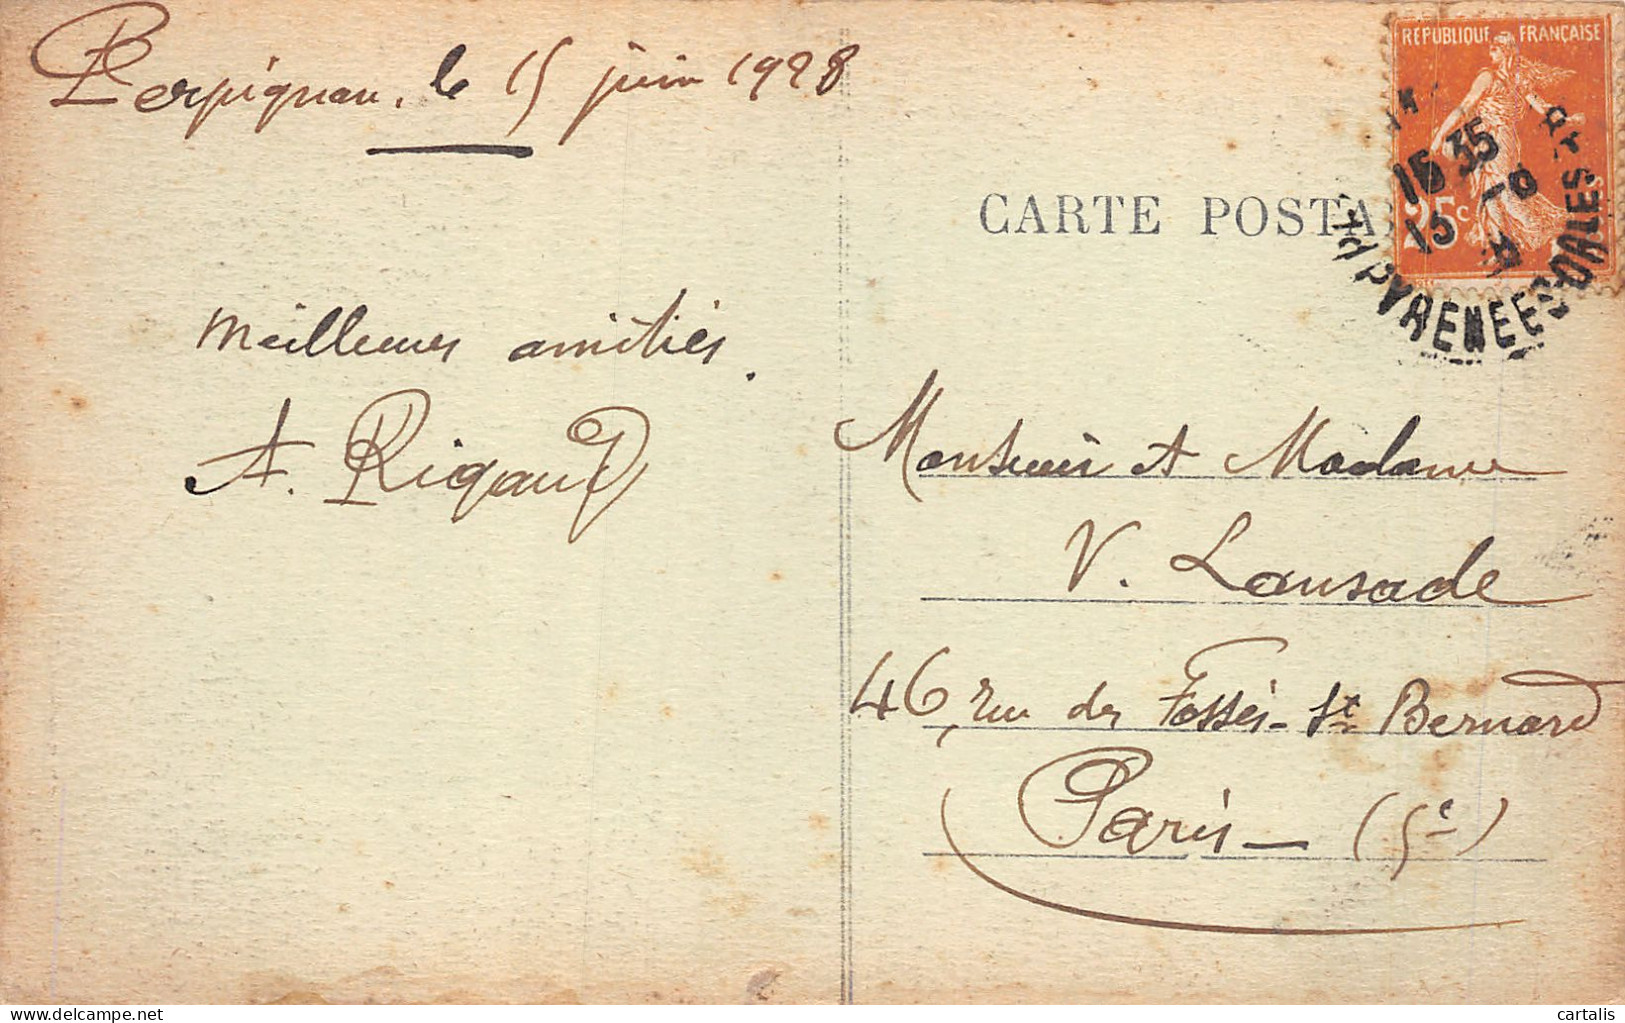 Perpignan, le 15 juin 1928
Meilleures amitiés.
A. Rigaud
RÉPUBLIQUE FRANÇAISE
25c
15 35
15
PYRENEES-
ALES
CARTE POSTA
Monsieur et Madame
V. Lansade
46, rue des Fossés-St Bernard
Paris – (5e)
delcampe.net
cartalis